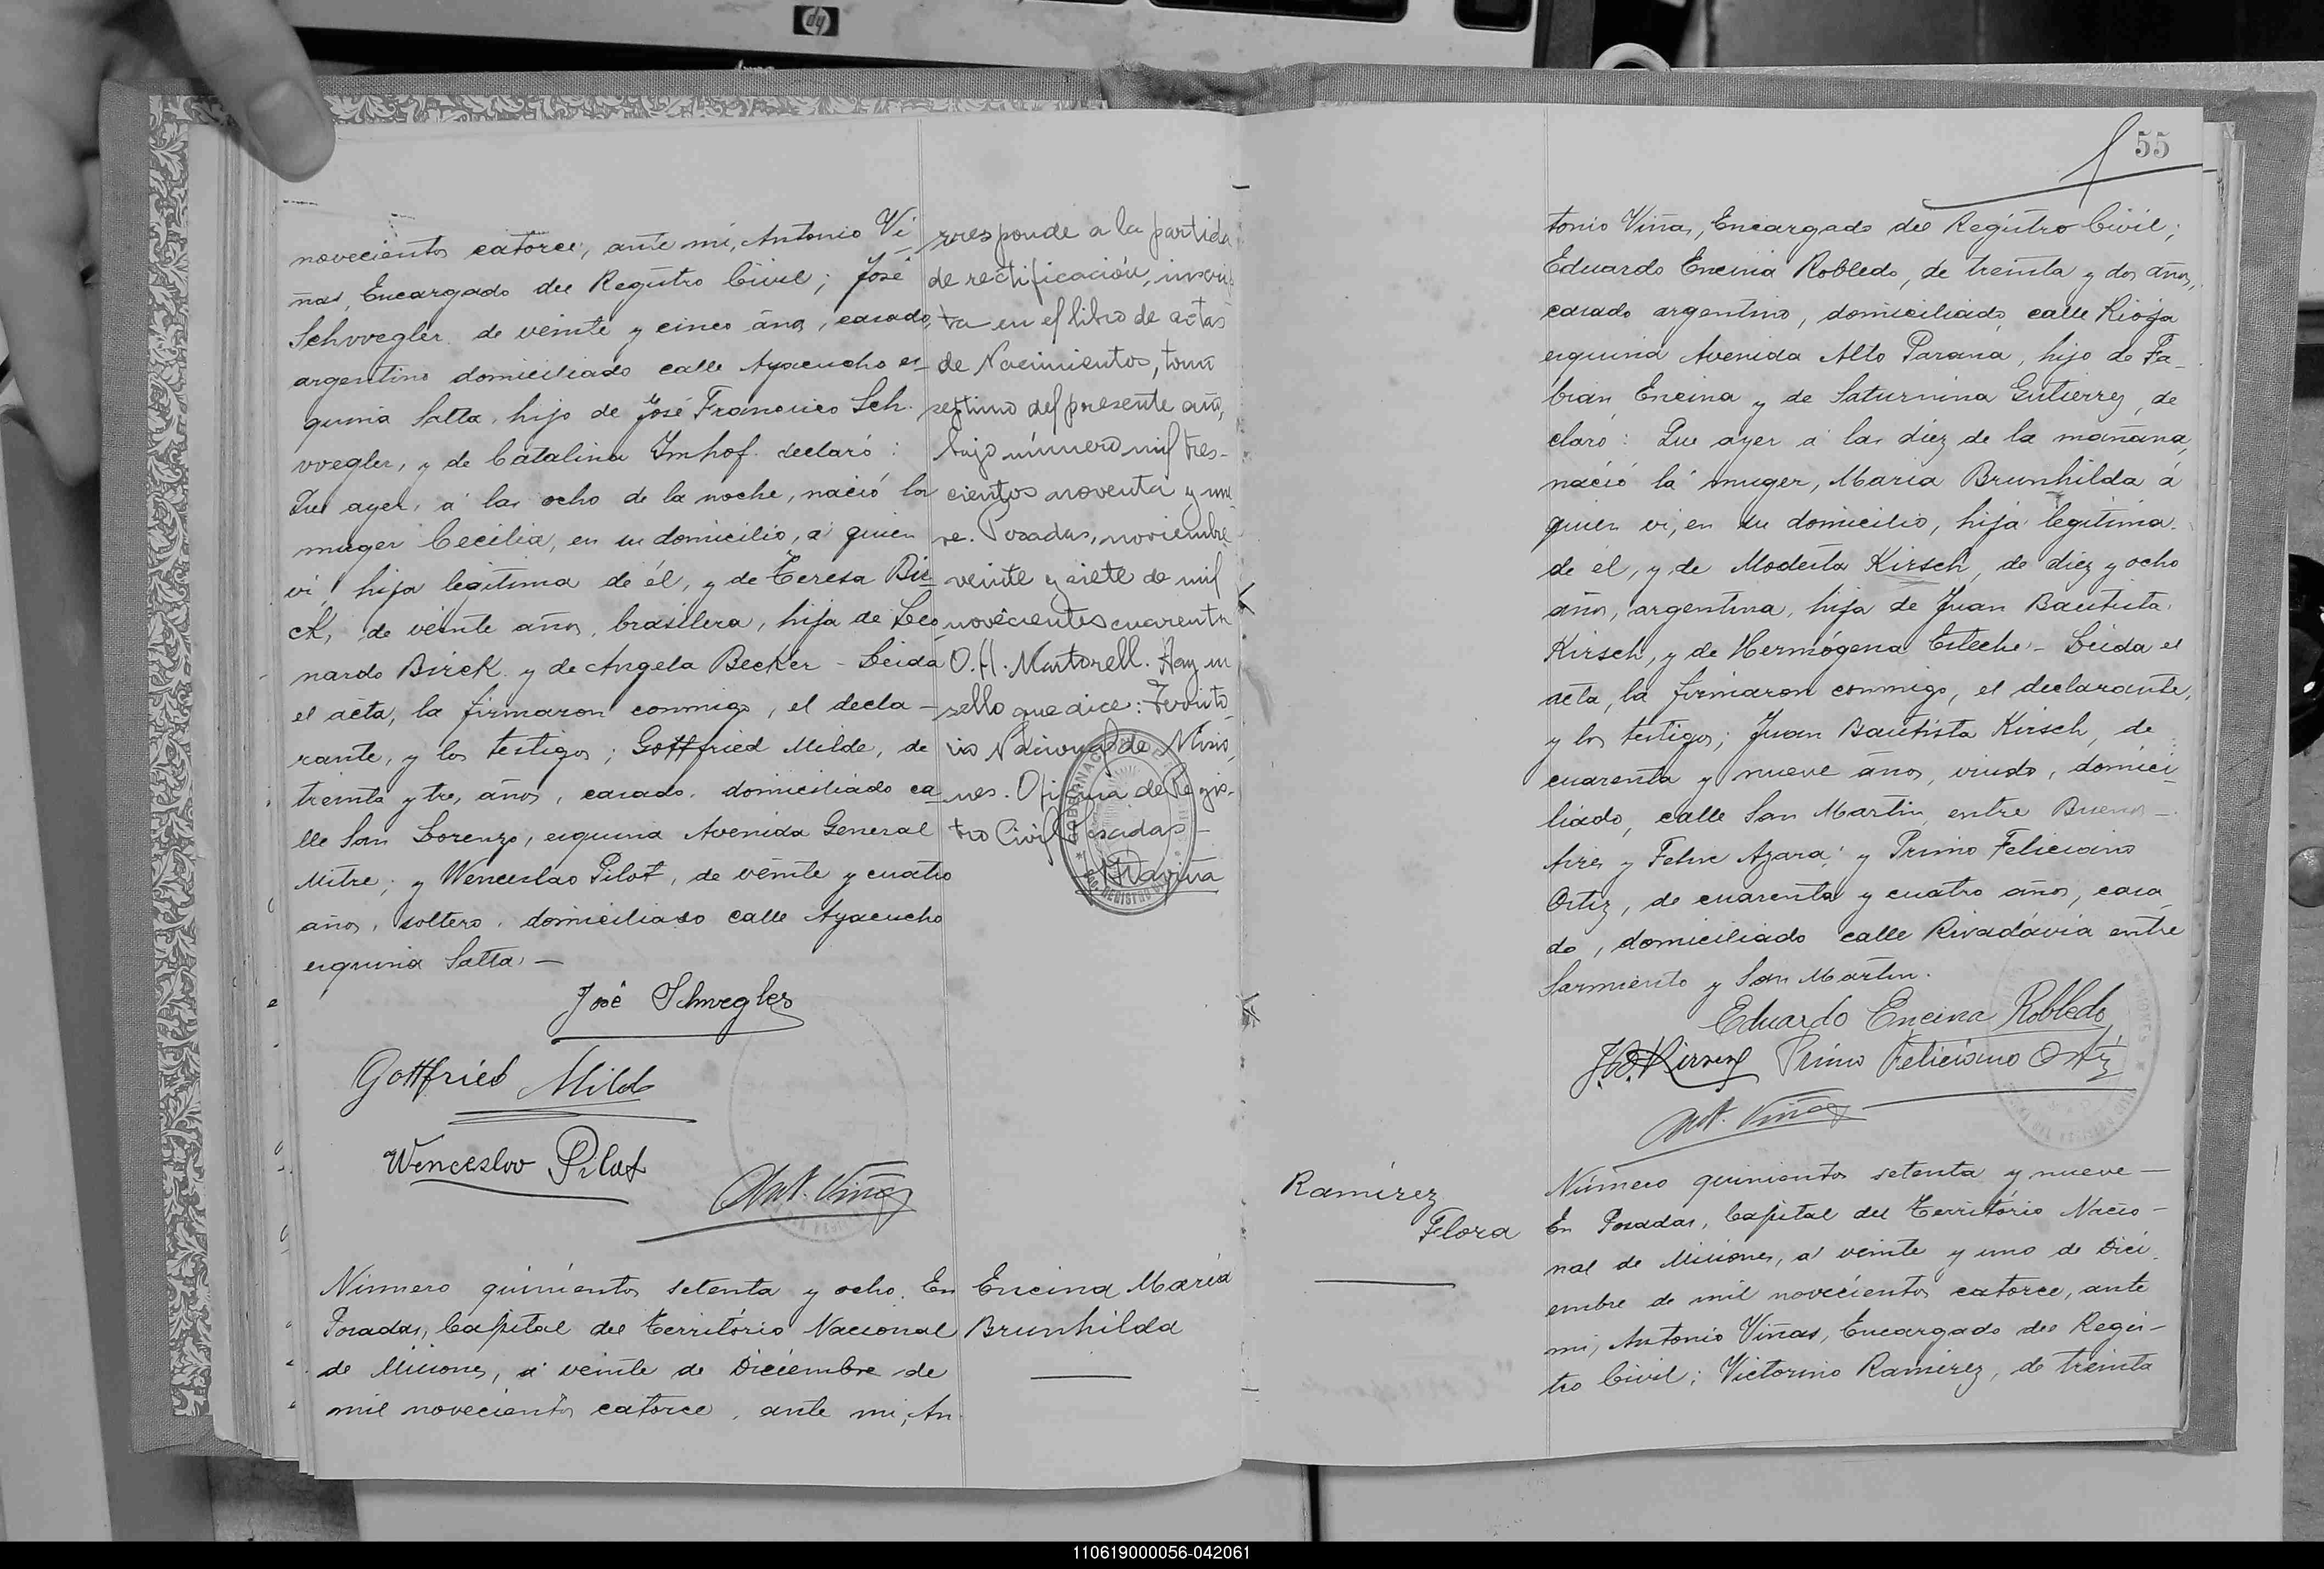 novecientos catorce, ante mi, Antonio Vi
ñas, Encargado del Registro Civil; José
Schvvegler de veinte y cinco años, casado,
argentino domiciliado calle Ayacucho es-
quina Salta, hijo de José Francisco Sch-
vvegler, y de Catalina Imhof declaró:
Que ayer, á las ocho de la noche, nació la
muger Cecilia, en su domicilio, á quien
vi, hija legitima de él, y de Teresa Bir-
ck, de veinte años, brasilera, hija de Leo
nardo Birck y de Angela Becker - Leida
el acta, la firmaron conmigo, el decla-
rante, y los testigos; Gottfried Milde, de
treinta y tres años, casado, domiciliado ca-
lle San Lorenzo, esquina Avenida General
Mitre; y Wenceslao Pilot, de veinte y cuatro
años, soltero, domiciliado calle Ayacucho
esquina Salta. —
José Schvegler
Gottfried Milde
Wenceslao Pilot
Ant. Viñas
Número quinientos setenta y ocho. En
Posadas, Capital del Território Nacional
de Misiones, á veinte de Diciembre de
mil novecientos catorce, ante mi, An
rresponde a la partida
de rectificación, inscrip
ta en el libro de actas
de Nacimientos, tomo
septimo del presente año,
bajo número mil tres-
cientos noventa y nue
ve. Posadas, noviembre
veinte y siete de mil
novecientos cuarenta
O. H. Martorell. Hay un
sello que dice: Territo
rio Nacional de Misio
nes. Oficina de Regis-
tro Civil Posadas -
Encina María
Brunhilda
55
tonio Viñas, Encargado del Registro Civil;
Eduardo Encina Robledo, de treinta y dos años,
casado argentino, domiciliado calle Rioja
esquina Avenida Alto Parana, hijo de Fa-
bian Encina y de Saturnina Gutierrez, de
claró: Que ayer á las diez de la mañana,
nació la muger, Maria Brunhilda á
quien vi, en su domicilio, hija legitima
de él, y de Modesta Kirsch, de diez y ocho
años, argentina, hija de Juan Bautista
Kirsch, y de Hermógena Esteche - Leida el
acta, la firmaron conmigo, el declarante,
y los testigos; Juan Bautista Kirsch, de
cuarenta y nueve años, viudo, domici
liado, calle San Martin entre Buenos
Aires y Felix Azara; y Primo Feliciano
Ortiz, de cuarenta y cuatro años, casa
do, domiciliado calle Rivadávia entre
Sarmiento y San Martin.
Eduardo Encina Robledo
J. B. Kirsch Primo Feliciano Ortiz
Ant. Viñas
Ramírez
Flora
Número quinientos setenta y nueve —
En Posadas, Capital del Território Nacio-
nal de Misiones, á veinte y uno de Dici
embre de mil novecientos catorce, ante
mi, Antonio Viñas, Encargado del Regis-
tro Civil; Victorino Ramirez, de treinta
110619000056-042061